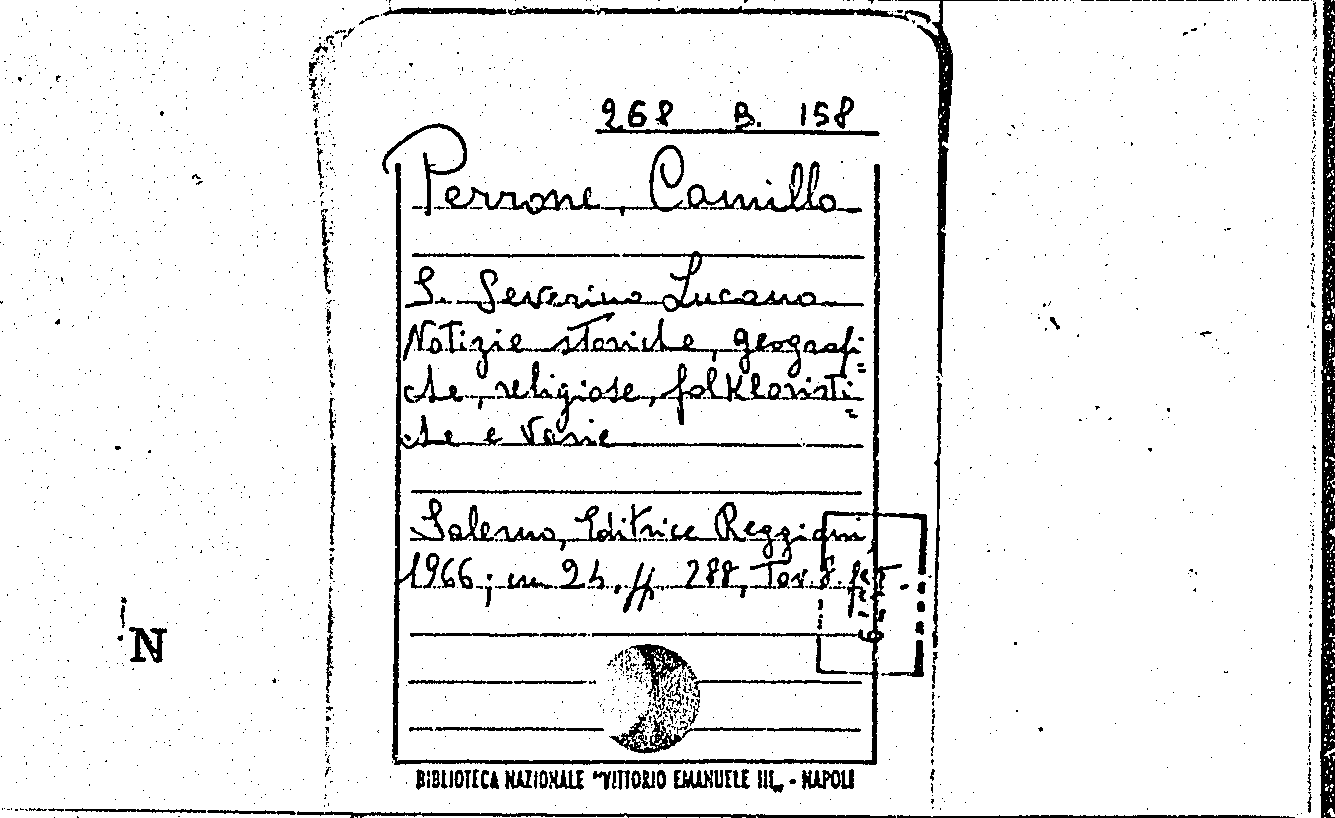 268 B. 158
Perrone, Camillo
S. Severino Lucano
Notizie storiche, geografi=
che, religiose, folkloristi=
che e varie
Salerno, Editrice Reggiani,
1966; in 24. pp. 288, Tav. 8.
N
BIBLIOTECA NAZIONALE "VITTORIO EMANUELE III„ - NAPOLI